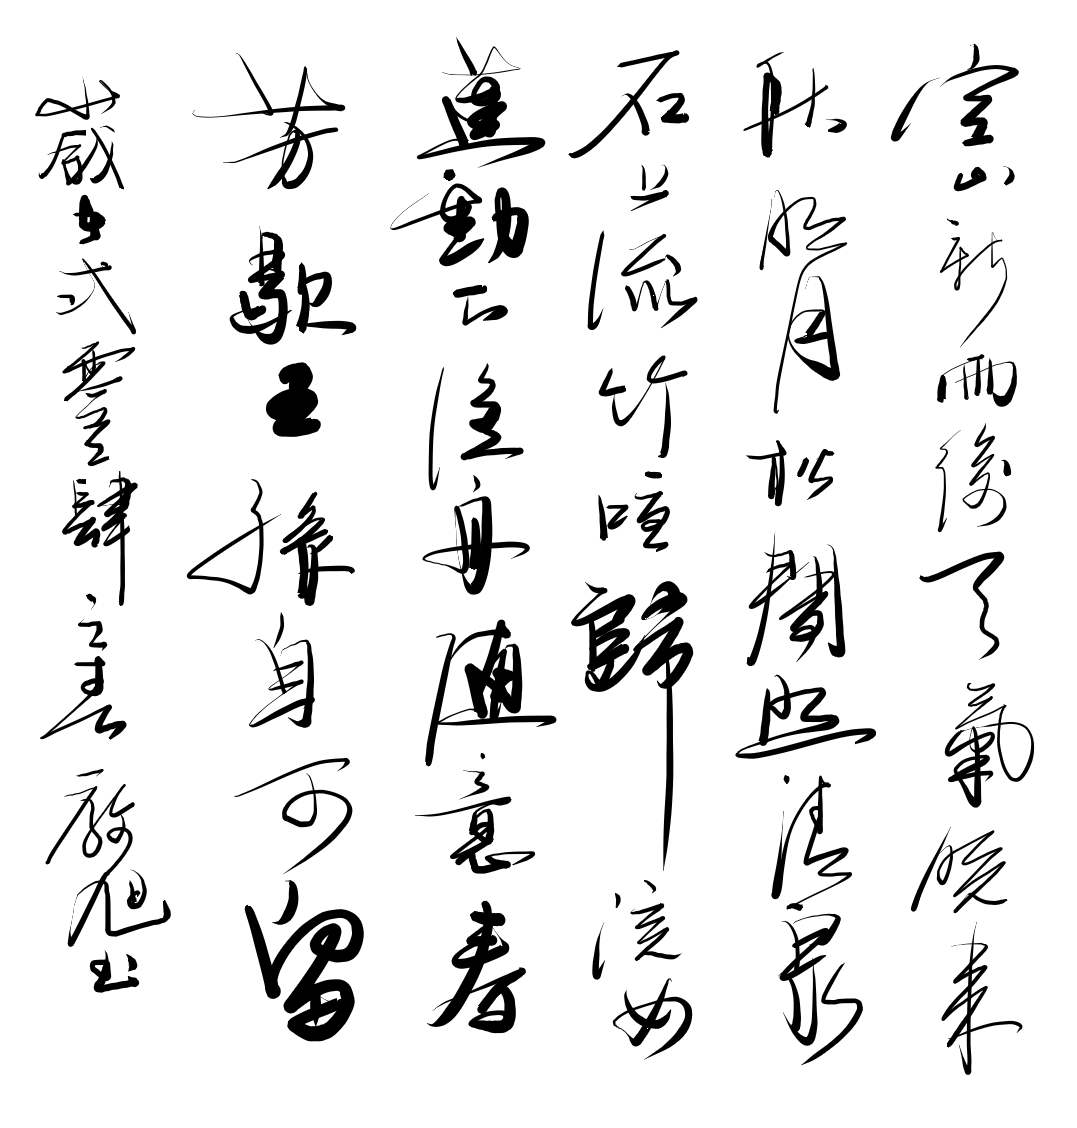 空山新雨後天氣晚來
秋明月松間照清泉
石上流竹喧歸浣女
蓮動下漁舟隨意春
芳歇王孫自可留
歲弍零肆之春旭书